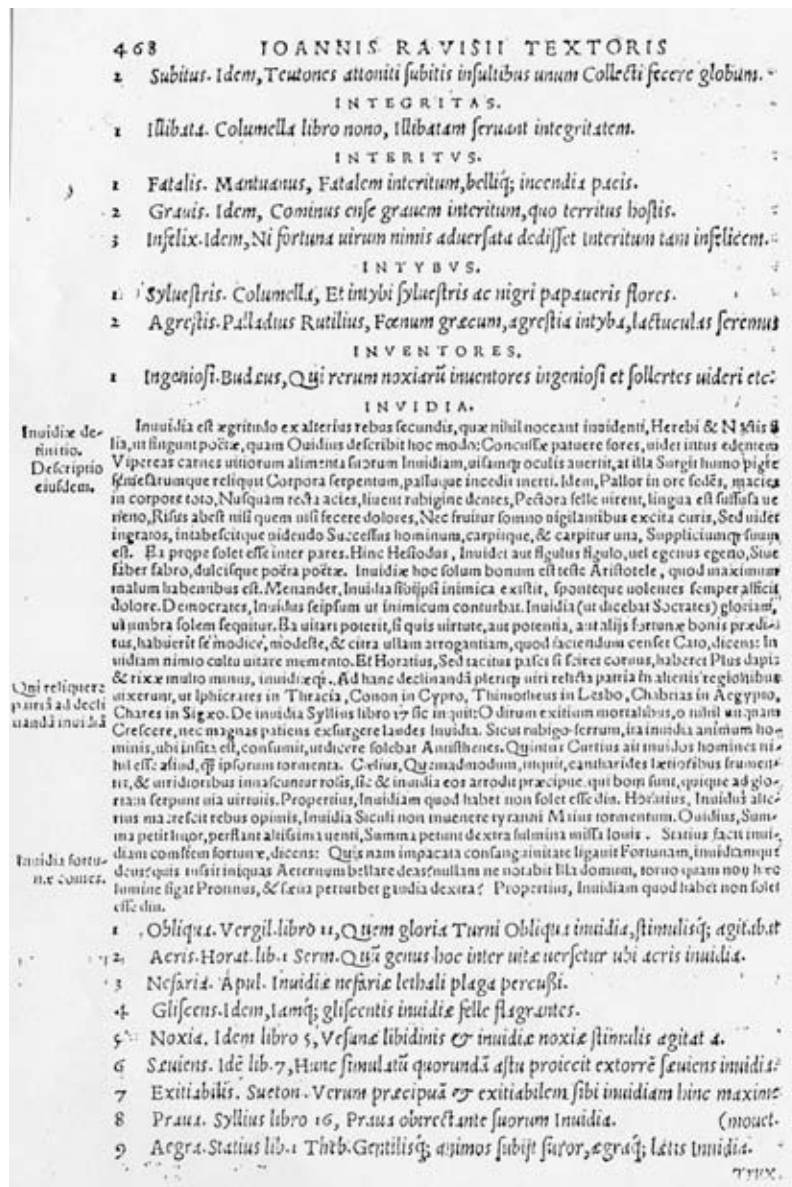 468 IOANNIS RAVISII TEXTORIS
2 Subitus. Idem, Teutones attoniti subitis insultibus unum Collecti fecere globum.
INTEGRITAS.
1 Illibata. Columella libro nono, Illibatam seruant integritatem.
INTERITVS.
1 Fatalis. Mantuanus, Fatalem interitum, belliq; incendia pacis.
2 Grauis. Idem, Cominus ense grauem interitum, quo territus hostis.
3 Infelix. Idem, Ni fortuna uirum nimis aduersata dedisset Interitum tam infelicem.
INTYBVS.
1 Syluestris. Columella, Et intybi syluestris ac nigri papaueris flores.
2 Agrestis. Palladius Rutilius, Fœnum græcum, agrestia intyba, lactuculas seremus
INVENTORES.
1 Ingeniosi. Budæus, Qui rerum noxiarũ inuentores ingeniosi et sollertes uideri etc:
INVIDIA.
Inuidiæ definitio.
Descriptio eiusdem.
Inuuidia est ægritudo ex alterius rebus secundis, quæ nihil noceant inuidenti, Herebi &
lia, ut fingunt poëtæ, quam Ouidius describit hoc modo: Concussæ patuere fores, uidet intus edentem
Vipereas carnes uitiorum alimenta suorum Inuidiam, uisamq; oculis auertit, at illa Surgit humo pigre
semesarumque reliquit Corpora serpentum, passuque incedit inerti. Idem, Pallor in ore sedẽs, macies
in corpore toto, Nusquam recta acies, liuent rubigine dentes, Pectora felle uirent, lingua est suffusa ue
neno, Risus abest nisi quem uisi fecere dolores, Nec fruitur somno uigilantibus excita curis, Sed uidet
ingratos, intabescitque uidendo Successus hominum, carpitque, & carpitur una, Suppliciumq; suum
est. Ea prope solet esse inter pares. Hinc Hesiodus, Inuidet aut figulus figulo, uel egenus egeno, Siue
faber fabro, dulcisque poëta poëtæ. Inuidiæ hoc solum bonum est teste Aristotele, quod maximum
malum habentibus est. Menander, Inuidia inimica existit, sponteque uolentes semper afficit
dolore. Democrates, Inuidus seipsum ut inimicum conturbat. Inuidia (ut dicebat Socrates) gloriam,
ut umbra solem sequitur. Ea uitari poterit, si quis uirtute, aut potentia, aut alijs fortunæ bonis prædi-
tus, habuerit se modice, modeste, & citra ullam arrogantiam, quod faciendum censet Cato, dicens: In
uidiam nimio cultu uitare memento. Et Horatius, Sed tacitus pasci si posset coruus, haberet Plus dapis
& rixæ multo minus, inuidiæq;. Ad hanc declinandã pleriq; uiri relicta patria in alienis regionibus
Qui reliquere
patriã ad decli
nandã inuidiã
uixerunt, ut Iphicrates in Thracia, Conon in Cypro, Thimotheus in Lesbo, Chabrias in Aegypto,
Chares in Sigæo. De inuidia Syllius libro 17 sic inquit: O dirum exitium mortalibus, o nihil unquam
Crescere, nec magnas patiens exsurgere laudes Inuidia. Sicut rubigo ferrum, ita inuidia animum ho-
minis, ubi insita est, consumit, ut dicere solebat Antisthenes. Quintus Curtius ait inuidos homines ni-
hil esse aliud, q̃ ipsorum tormenta. Celius, Quemadmodum, inquit, cantharides lætioribus frumen-
tis, & uiridioribus innascuntur rosis, sic & inuidia eos arrodit præcipue, qui boni sunt, quique ad glo-
riam serpunt uia uirtutis. Propertius, Inuidiam quod habet non solet esse diu. Horatius, Inuidus alte-
rius macrescit rebus opimis, Inuidia Siculi non inuenere tyranni Maius tormentum. Ouidius, Sum-
ma petit liuor, perflant altissima uenti, Summa petunt dextra fulmina missa Iouis. Statius facit inui-
Inuidia fortu-
næ comes.
diam comitem fortunæ, dicens: Quis nam impacata consanguinitate ligauit Fortunam, inuidiamque
deus? quis iussit iniquas Aeternum bellare deas? nullam ne notabit Illa domum, toruo quam non hæc
lumine figat Protinus, & sæua perturbet gaudia dextra? Propertius, Inuidiam quod habet non solet
esse diu.
1 Obliqua. Vergil. libro 11, Quem gloria Turni Obliqua inuidia, stimulisq; agitabat
2 Acris. Horat. lib. 1 Serm. Quũ genus hoc inter uitæ uersetur ubi acris inuidia.
3 Nefaria. Apul. Inuidiæ nefariæ lethali plaga percussi.
4 Gliscens. Idem, Iamq; gliscentis inuidiæ felle flagrantes.
5 Noxia. Idem libro 5, Vesanæ libidinis & inuidiæ noxiæ stimulis agitatæ.
6 Sæuiens. Idẽ lib. 7, Hunc simulatũ quorundã astu proiecit extorrẽ sæuiens inuidia.
7 Exitiabilis. Sueton. Verum præcipuã & exitiabilem sibi inuidiam hinc maxime
8 Praua. Syllius libro 16, Praua obtrectante suorum Inuidia. (mouet.
9 Aegra. Statius lib. 1 Theb. Gentilisq; animos subijt furor, ægraq; lætis Inuidia.